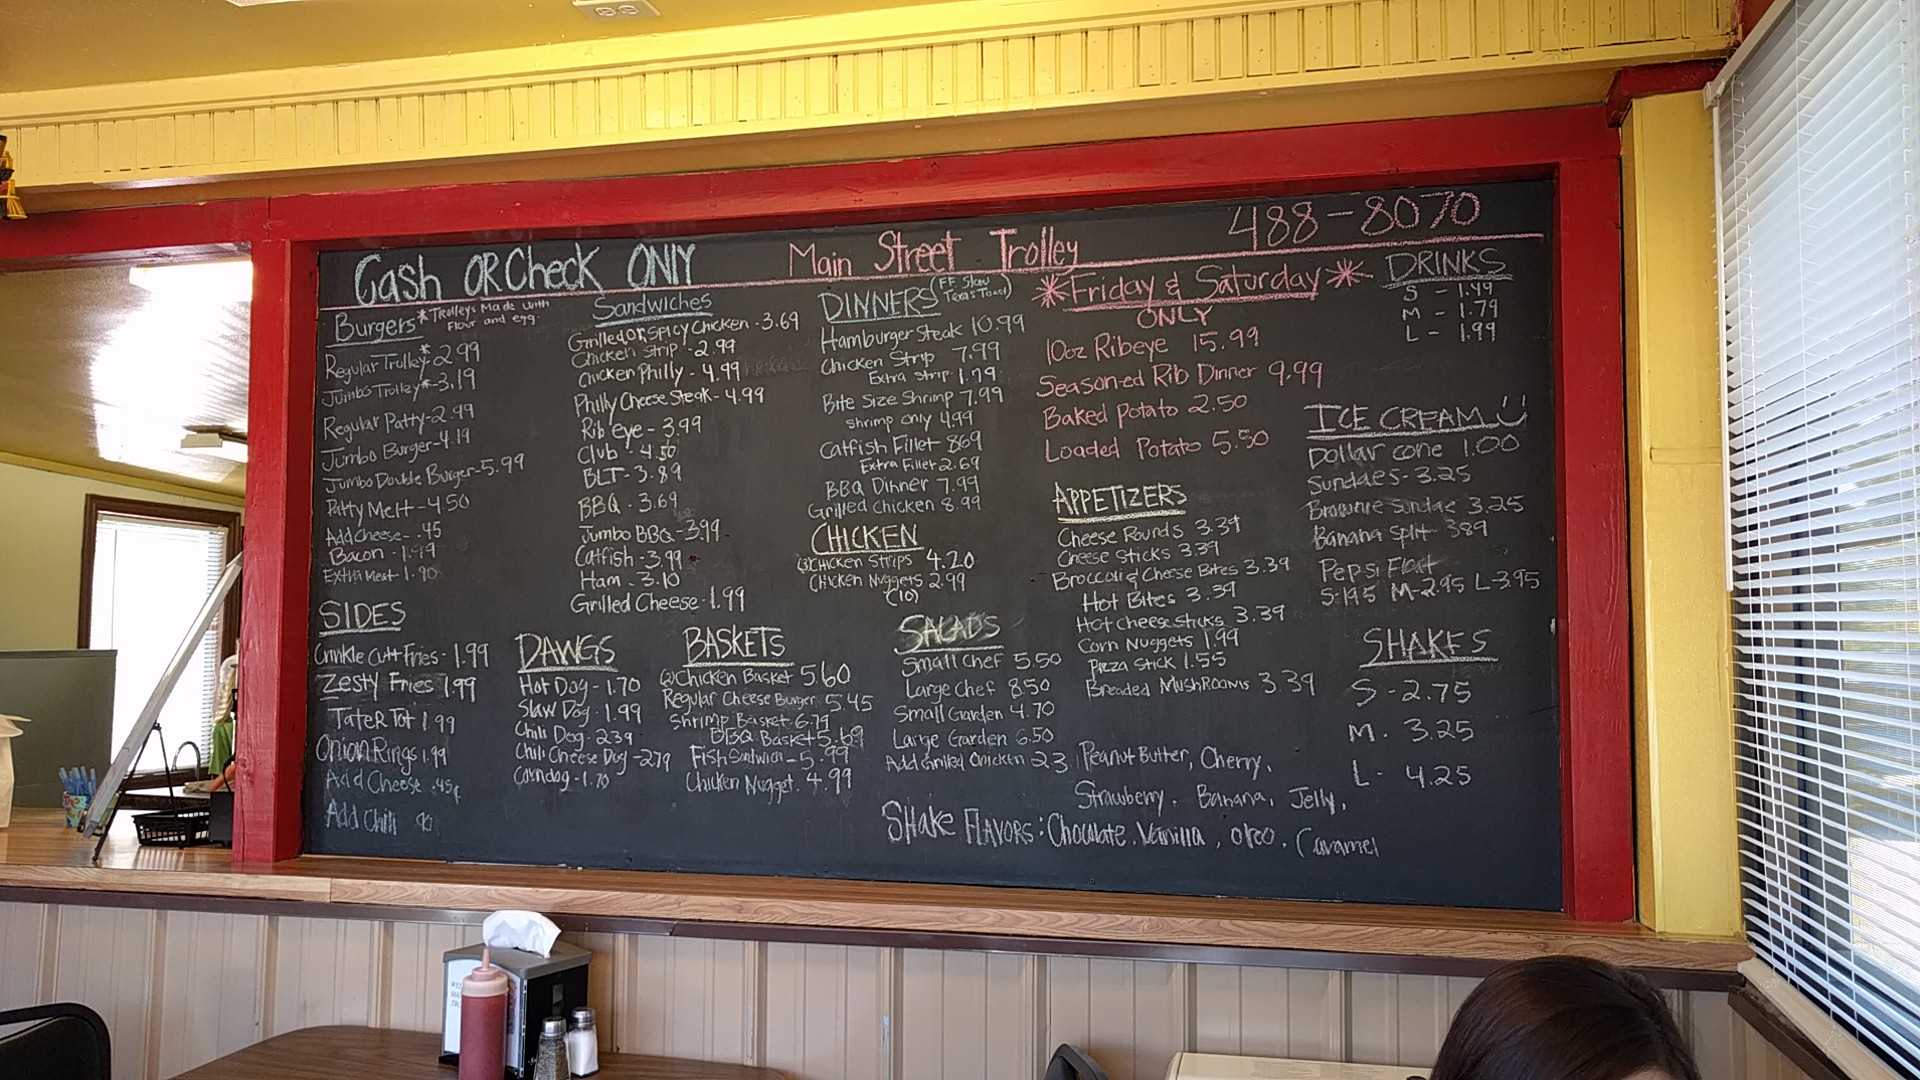 Cash OR Check ONLY
Main Street Trolley
488-8070
Burgers
*Trolleys Made with
Flour and egg.
Regular Trolley* 2.99
Jumbo Trolley*-3.19
Regular Patty-2.99
Jumbo Burger-4.19
Jumbo Double Burger-5.99
Patty Melt-4.50
Add cheese-.45
Bacon-1.49
Extra Meat-1.90
SIDES
Crinkle Cutt Fries-1.99
Zesty Fries 1.99
TateR Tot 1.99
Onion Rings 1.99
Add Cheese .45¢
Add Chili 90
Sandwiches
Grilled OR SPICY Chicken-3.69
Chicken Strip-2.99
Chicken Philly-4.99
Philly Cheese Steak-4.99
Rib eye-3.99
Club-4.50
BLT-3.89
BBQ-3.69
Jumbo BBQ-3.99
Catfish-3.99
Ham-3.10
Grilled Cheese-1.99
DAWGS
Hot Dog-1.70
Slaw Dog-1.99
Chili Dog-2.39
Chili Cheese Dog-2.79
Corndog-1.70
BASKETS
(2)Chicken Basket 5.60
Regular Cheese Burger 5.45
Shrimp Basket-6.79
BBQ Basket 5.69
Fish Sandwich-5.99
Chicken Nugget. 4.99
DINNERS
(FF Slaw
Texas Toast)
Hamburger Steak 10.99
Chicken Strip 7.99
Extra Strip 1.79
Bite Size Shrimp 7.99
shrimp only 4.99
Catfish Fillet 8.69
Extra Fillet 2.69
BBQ Dinner 7.99
Grilled Chicken 8.99
CHICKEN
(3)CHICKEN STRIPS 4.20
Chicken Nuggets 2.99
(10)
SALADS
Small Chef 5.50
Large Chef 8.50
Small Garden 4.70
Large Garden 6.50
Add Grilled Chicken 2.3
*Friday & Saturday*
ONLY
10oz Ribeye 15.99
Seasoned Rib Dinner 9.99
Baked Potato 2.50
Loaded Potato 5.50
APPETIZERS
Cheese Rounds 3.39
Cheese Sticks 3.39
Broccoli & Cheese Bites 3.39
Hot Bites 3.39
Hot cheese sticks 3.39
Corn Nuggets 1.99
Pizza Stick 1.55
Breaded MushROOMS 3.39
DRINKS
S - 1.49
M - 1.79
L - 1.99
ICE CREAM
Dollar cone 1.00
Sundaes-3.25
Brownie Sundae 3.25
Banana Split 3.89
Pepsi Float
S-1.95 M-2.95 L-3.95
SHAKES
S-2.75
M. 3.25
L- 4.25
Peanut Butter, Cherry,
Strawberry, Banana, Jelly,
Shake Flavors: Chocolate, Vanilla, oreo, Caramel